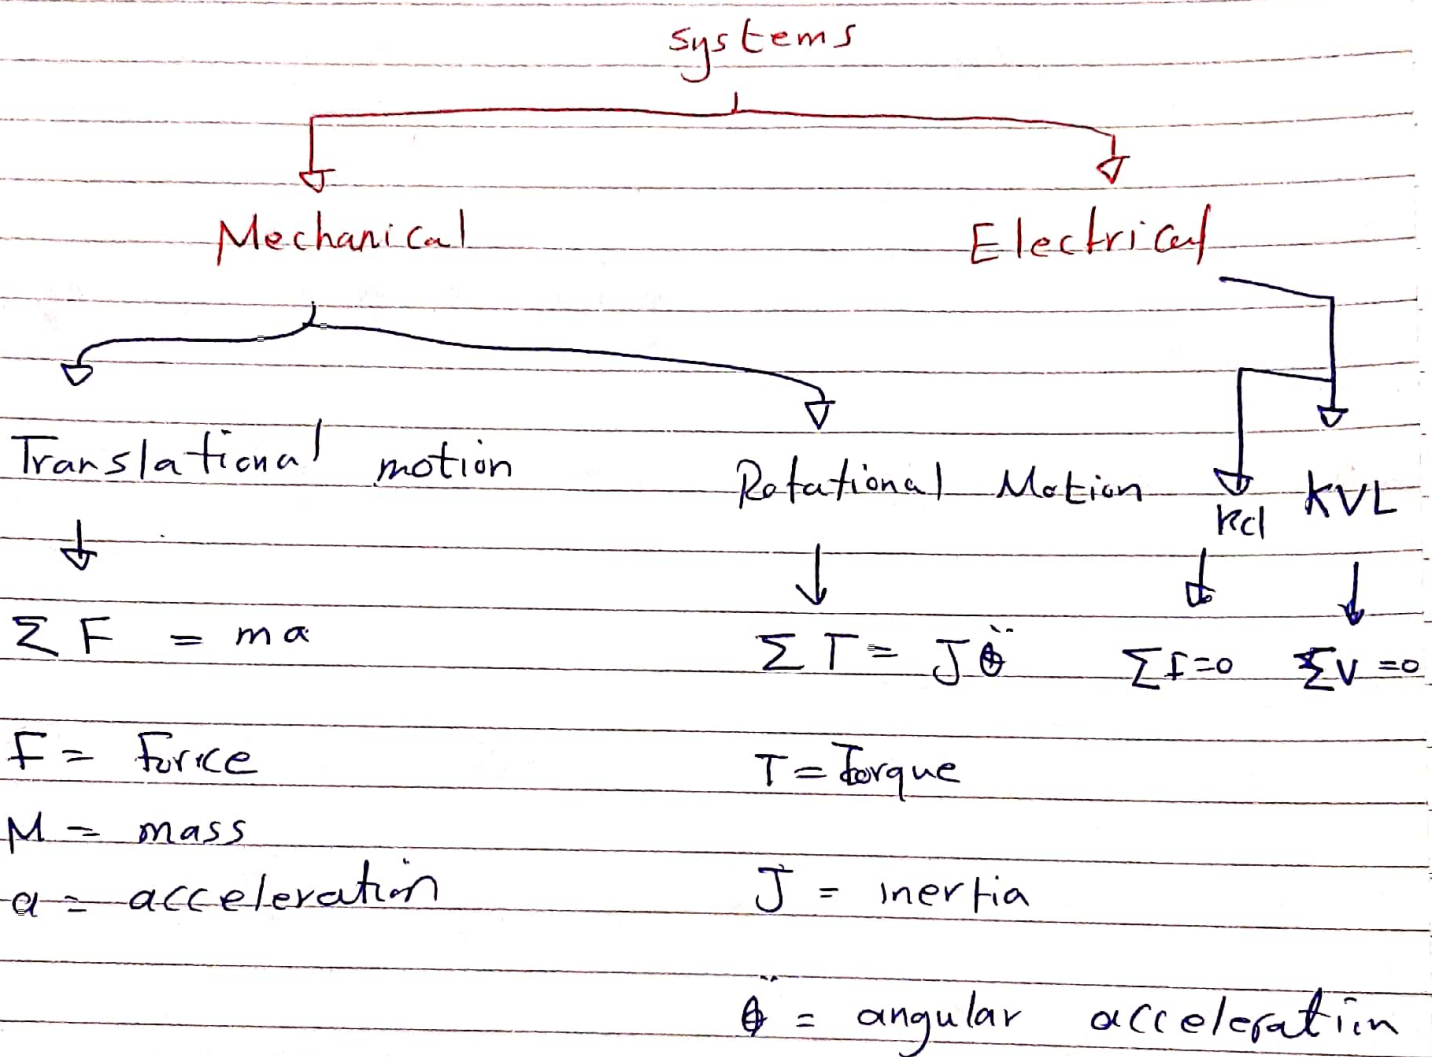 systems
Mechanical Electrical
Translational motion Rotational Motion Kcl KVL
Σ F = ma Σ T = J θ̈ Σ I=0 Σ V =0
F = Force T = Torque
M = mass
a = acceleration J = inertia
θ̈ = angular acceleration